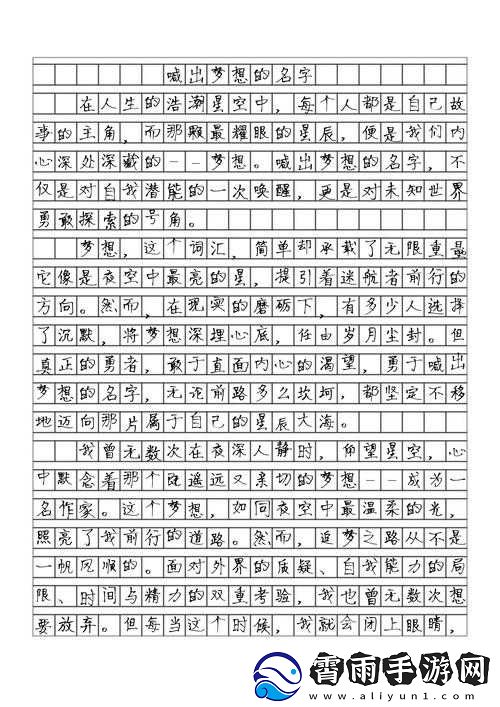 喊出梦想的名字
在人生的浩瀚星空中，每个人都是自己故
事的主角，而那颗最耀眼的星辰，便是我们内
心深处深藏的——梦想。喊出梦想的名字，不
仅是对自我潜能的一次唤醒，更是对未知世界
勇敢探索的号角。
梦想，这个词汇，简单却承载了无限重量
它像是夜空中最亮的星，指引着迷航者前行的
方向。然而，在现实的磨砺下，有多少人选择
了沉默，将梦想深埋心底，任由岁月尘封。但
真正的勇者，敢于直面内心的渴望，勇于喊出
梦想的名字，无论前路多么坎坷，都坚定不移
地迈向那片属于自己的星辰大海。
我曾无数次在夜深人静时，仰望星空，心
中默念着那个既遥远又亲切的梦想——成为一
名作家。这个梦想，如同夜空中最温柔的光，
照亮了我前行的道路。然而，追梦之路从不是
一帆风顺的。面对外界的质疑、自我能力的局
限、时间与精力的双重考验，我也曾无数次想
要放弃。但每当这个时候，我就会闭上眼睛，
霄雨手游网
www.aliyun1.com